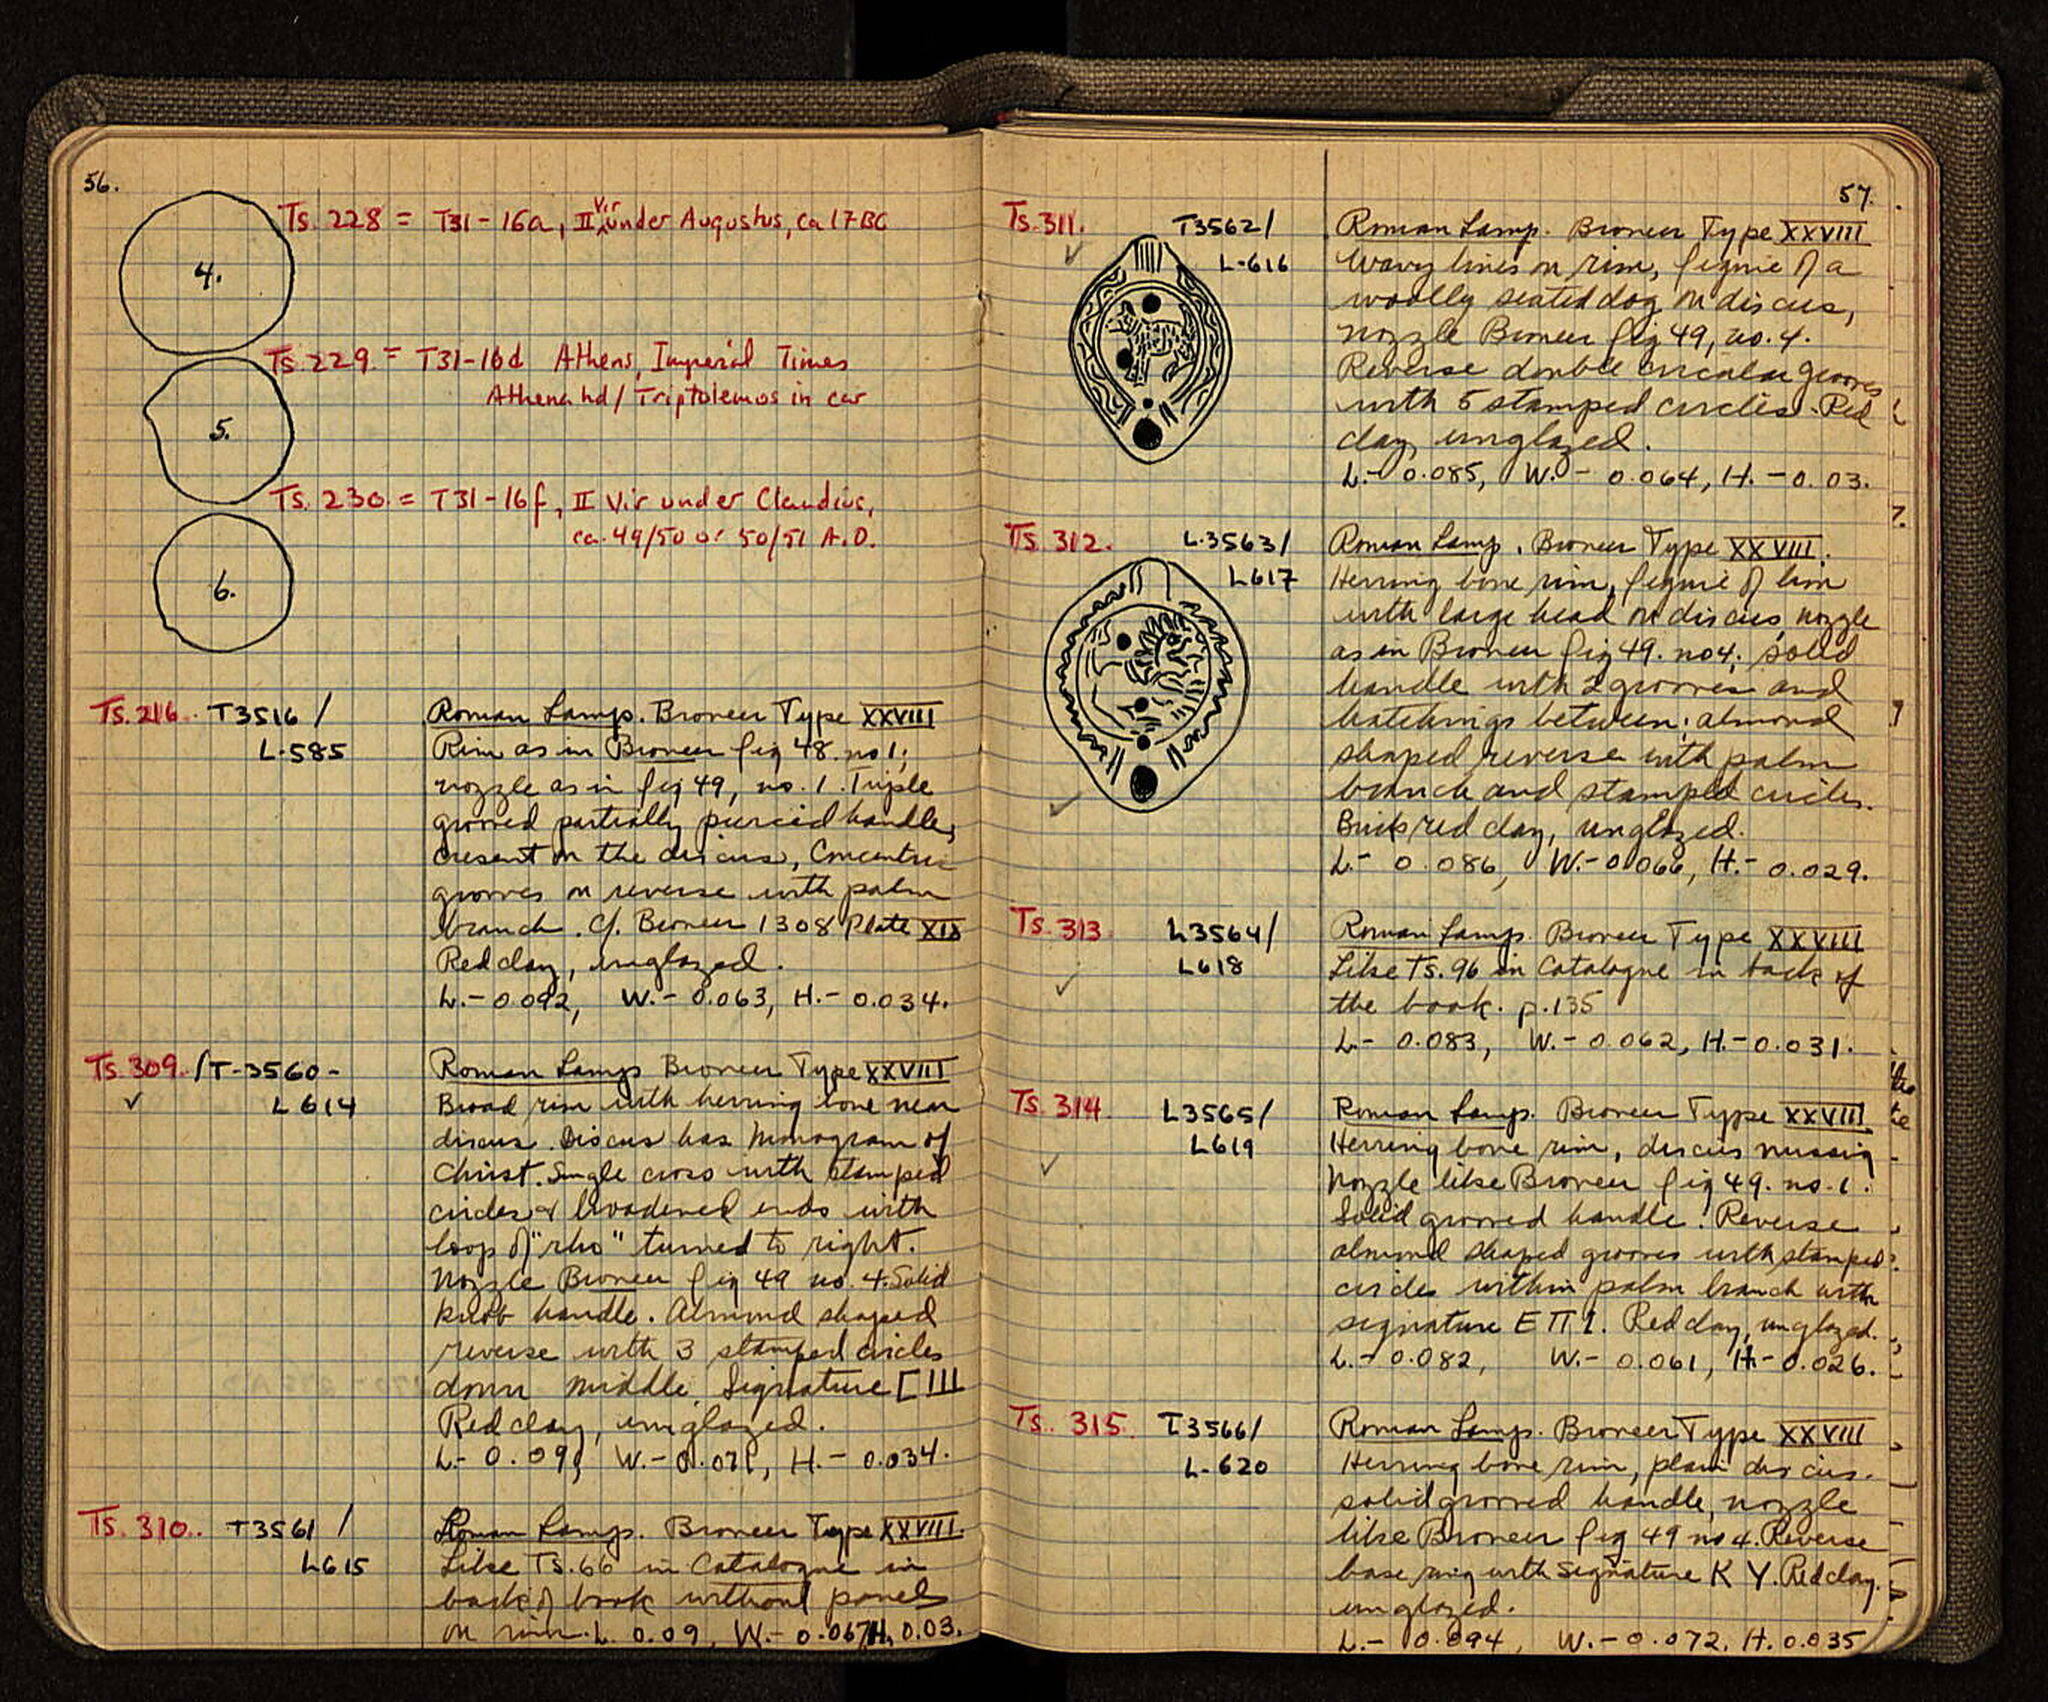 56.
Ts. 228 = T31-16a, II Vir under Augustus, ca 17 BC
4.
Ts. 229 = T31-16d Athens, Imperial Times
Athena hd/Triptolemos in car
5.
Ts. 230. = T31-16f, II Vir under Claudius,
ca. 49/50 or 50/51 A.D.
6.
Ts. 216. T3516/
L-585
Roman Lamp. Broneer Type XXVIII
Rim as in Broneer fig 48. no 1;
nozzle as in fig 49, no. 1. Triple
grooved partially pierced handle,
cresent on the discus, Concentric
grooves on reverse with palm
branch. Cf. Broneer 1308 Plate XIX
Red clay, unglazed.
L.-0.092, W.-0.063, H.-0.034.
Ts 309. /T-3560-
L 614
Roman Lamp Broneer Type XXVIII
Broad rim with herring bone near
discus. Discus has Monogram of
Christ. Single cross with stamped
circles & broadened ends with
loop of "rho" turned to right.
Nozzle Broneer fig 49 no. 4. Solid
knob handle. Almond shaped
reverse with 3 stamped circles
down middle Signature [III
Red clay, unglazed.
L.- 0.091, W.-0.071, H.- 0.034.
Ts. 310. T3561/
L615
Roman Lamp. Broneer Type XXVIII.
Like Ts. 66 in Catalogue in
back of book without panels
on rim. L. 0.09, W.- 0.067, H. 0.03.
57.
Ts. 311. T3562/
L-616
Roman Lamp. Broneer Type XXVIII
Wavy lines on rim, figure of a
woolly seated dog on discus,
nozzle Broneer fig 49, no. 4.
Reverse double circular grooves
with 5 stamped circles. Red
clay, unglazed.
L.- 0.085, W.- 0.064, H.-0.03.
Ts 312. L.3563/
L617
Roman Lamp. Broneer Type XXVIII.
Herring bone rim, figure of lion
with large head on discus, nozzle
as in Broneer fig 49. no 4; solid
handle with 2 grooves and
hatchings between; almond
shaped reverse with palm
branch and stamped circles.
Brick red clay, unglazed.
L.- 0.086, W.-0.066, H.- 0.029.
Ts. 313 L3564/
L618
Roman Lamp. Broneer Type XXVIII
Like Ts. 96 in Catalogue in back of
the book. p.135
L.- 0.083, W.-0.062, H.-0.031.
Ts. 314 L3565/
L619
Roman Lamp. Broneer Type XXVIII.
Herring bone rim, discus missing
Nozzle like Broneer fig 49. no. 1.
Solid grooved handle. Reverse
almond shaped grooves with stamped
circles within palm branch with
signature E Π 1. Red clay, unglazed.
L.-0.082, W.- 0.061, H.-0.026.
Ts. 315. T3566/
L-620
Roman Lamp. Broneer Type XXVIII
Herring bone rim, plain discus.
solid grooved handle, nozzle
like Broneer fig 49 no 4. Reverse
base ring with signature K Y. Red clay.
unglazed.
L.- 0.094, W.-0.072, H. 0.035